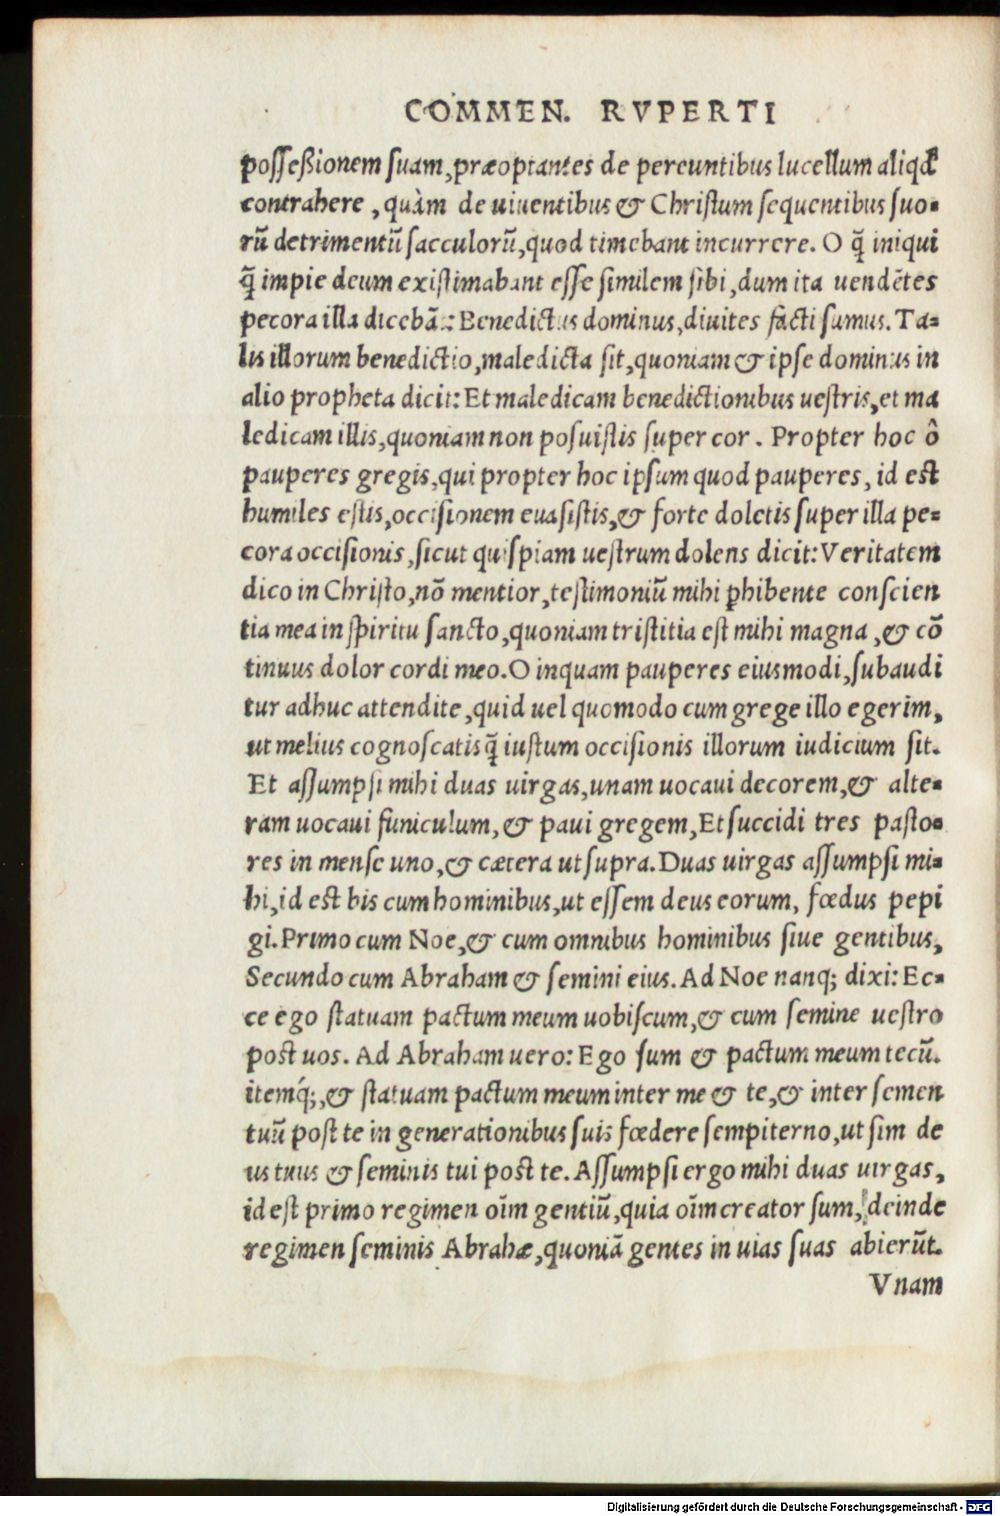 COMMEN. RVPERTI
posseßionem suam, præoptantes de pereuntibus lucellum aliqđ
contrahere, quàm de uiuentibus & Christum sequentibus suo-
rũ detrimentũ sacculorũ, quod timebant incurrere. O q̃ iniqui
q̃ impie deum existimabant esse similem sibi, dum ita uendẽtes
pecora illa dicebãt: Benedictus dominus, diuites facti sumus. Ta-
lis illorum benedictio, maledicta sit, quoniam & ipse dominus in
alio propheta dicit: Et maledicam benedictionibus uestris, et ma
ledicam illis, quoniam non posuistis super cor. Propter hoc ô
pauperes gregis, qui propter hoc ipsum quod pauperes, id est
humiles estis, occisionem euasistis, & forte doletis super illa pe-
cora occisionis, sicut quispiam uestrum dolens dicit: Veritatem
dico in Christo, nõ mentior, testimoniũ mihi ꝑhibente conscien
tia mea in spiritu sancto, quoniam tristitia est mihi magna, & cõ
tinuus dolor cordi meo. O inquam pauperes eiusmodi, subaudi
tur adhuc attendite, quid uel quomodo cum grege illo egerim,
ut melius cognoscatis q̃ iustum occisionis illorum iudicium sit.
Et assumpsi mihi duas uirgas, unam uocaui decorem, & alte-
ram uocaui funiculum, & paui gregem, Et succidi tres pasto-
res in mense uno, & cætera ut supra. Duas uirgas assumpsi mi-
hi, id est bis cum hominibus, ut essem deus eorum, fœdus pepi
gi. Primo cum Noe, & cum omnibus hominibus siue gentibus,
Secundo cum Abraham & semini eius. Ad Noe nanq; dixi: Ec-
ce ego statuam pactum meum uobiscum, & cum semine uestro
post uos. Ad Abraham uero: Ego sum & pactum meum tecũ.
itemq́;, & statuam pactum meum inter me & te, & inter semen
tuũ post te in generationibus suis fœdere sempiterno, ut sim de
us tuus & seminis tui post te. Assumpsi ergo mihi duas uirgas,
id est primo regimen oĩm gentiũ, quia oĩm creator sum, deinde
regimen seminis Abrahæ, quoniã gentes in uias suas abierũt.
Vnam
Digitalisierung gefördert durch die Deutsche Forschungsgemeinschaft - DFG